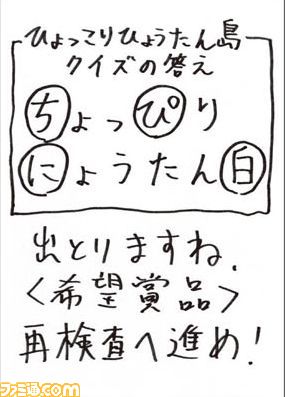 ひょっこりひょうたん島
クイズの答え
ちょっぴり
にょうたん白
出とりますね.
<希望賞品>
再検査へ進め!
ファミ通.com